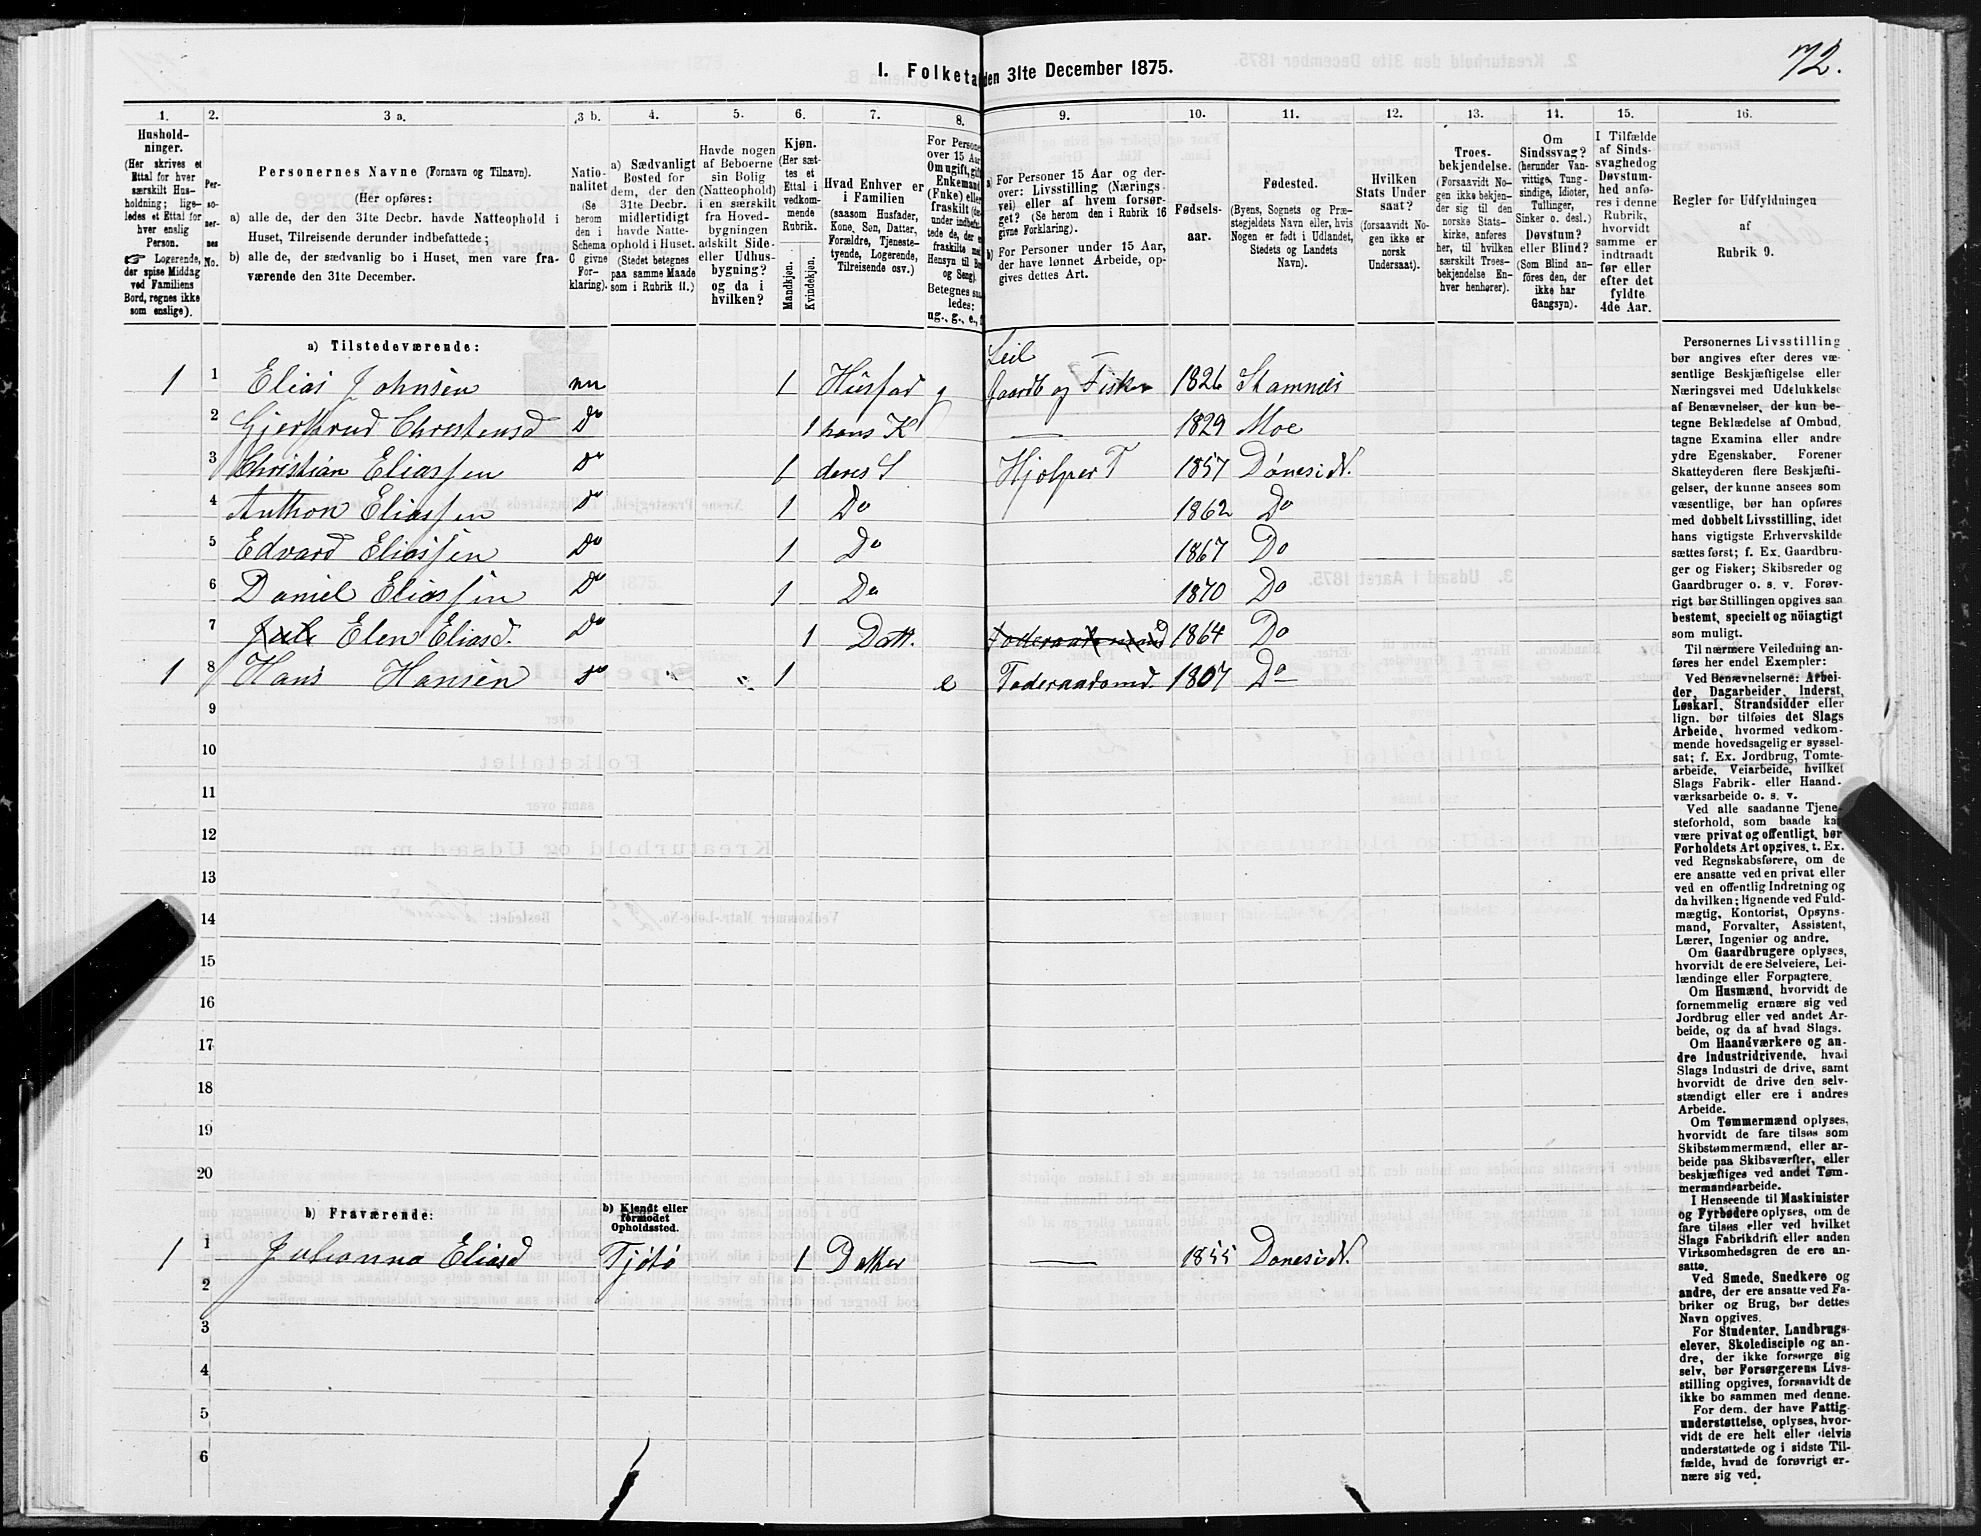 72.
1. Folketal den 31te December 1875.
1. 2. 3 a. 3 b. 4. 5. 6. 7. 8. 9. 10. 11. 12. 13. 14. 15. 16.
Husholdninger.
(Her skrives et
Ettal for hver
særskilt Husholdning; ligeledes
et Ettal for
hver enslig
Person.
☞ Logerende,
der spise Middag
ved Familiens
Bord, regnes ikke
som enslige).
Personernes
No.
Personernes Navne (Fornavn og Tilnavn).
(Her opføres:
a) alle de, der den 31te Decbr. havde Natteophold i
Huset, Tilreisende derunder indbefattede;
b) alle de, der sædvanlig bo i Huset, men vare fraværende
den 31te December.
Nationalitet
(Se
herom
den i
Schema
C givne
Forklaring).
a) Sædvanligt
Bosted for
dem, der den
31te Decbr.
midlertidigt
havde Natteophold
i Huset.
(Stedet betegnes
paa samme Maade
som i Rubrik 11.)
Havde nogen
af Beboerne
sin Bolig
(Natteophold)
i en særskilt
fra Hovedbygningen
adskilt Side-
eller Udhusbygning?
og da i
hvilken?
Kjøn.
(Her sættes
et
Ettal i
vedkommende
Rubrik.
Mandkjøn.
Kvindekjøn.
Hvad Enhver er
i Familien
(saasom Husfader,
Kone, Søn, Datter,
Forældre, Tjenestetyende,
Logerende,
Tilreisende osv.)
For Personer
over 15 Aar
Om ugift, gift
Enkemand
(Enke) eller
fraskilt
Betegnes saaledes:
ug., g., e., f.
a) For Personer 15 Aar og derover:
Livsstilling (Næringsvei)
eller af hvem forsørget?
(Se herom den i Rubrik 16
givne Forklaring).
b) For Personer under 15 Aar,
der have lønnet Arbeide, opgives
dettes Art.
Fødselsaar.
Fødested.
(Byens, Sognets og Præstegjeldets
Navn eller, hvis
Nogen er født i Udlandet,
Stedets og Landets
Navn).
Hvilken
Stats Undersaat?
(forsaavidt Nogen
ikke er
norsk
Undersaat).
Troesbekjendelse.
(Forsaavidt Nogen
ikke bekjender
sig til den
norske Statskirke,
anføres
her, til hvilken
særskilt Troesbekjendelse
Enhver
henhører).
Om
Sindssvag?
(herunder Vanvittige,
Tungsindige,
Idioter,
Tullinger,
Sinker o. desl.)
Døvstum?
eller Blind?
(Som Blind anføres
den, der
ikke har
Gangsyn).
I Tilfælde
af Sindssvaghed
og
Døvstumhed
anføres
i denne
Rubrik,
hvorvidt
samme er
indtraadt
før eller
efter det
fyldte
4de Aar.
Regler for Udfyldningen
af
Rubrik 9.
a) Tilstedeværende:
Leil
1 1 Elias Johnsen nn 1 Husfad g Gaardb og Fisker 1826 Stamnes
2 Gjertrud Christensd Do 1 hans K — 1829 Moe
3 Christian Eliassen Do 1 deres S Hjelper T 1857 Dönesidt.
4 Anthon Eliassen Do 1 Do 1862 Do
5 Edvard Eliassen Do 1 Do 1867 Do
6 Daniel Eliassen Do 1 Do 1870 Do
7 Elen Eliasd. Do 1 Datt. 1864 Do
1 8 Hans Hansen Do 1 e Foderaadsmd. 1807 Do
9
10
11
12
13
14
15
16
17
18
19
20
b) Fraværende:
b) Kjendt eller
formodet
Opholdssted.
1 1 Julianna Eliasd Tjötö 1 Datter — 1855 Donesidt.
2
3
4
5
6
Personernes Livsstilling
bør angives efter deres væsentlige
Beskjæftigelse eller
Næringsvei med Udelukkelse
af Benævnelser, der kun betegne
Beklædelse af Ombud,
tagne Examina eller andre
ydre Egenskaber. Forener
Skatteyderen flere Beskjæftigelser,
der kunne ansees som
væsentlige, bør han opføres
med dobbelt Livsstilling, idet
hans vigtigste Erhvervskilde
sættes først; f. Ex. Gaardbruger
og Fisker; Skibsreder og
Gaardbruger o. s. v. Forøvrigt
bør Stillingen opgives saa
bestemt, specielt og nöiagtigt
som muligt.
Til nærmere Veiledning anføres
her endel Exempler:
Ved Benævnelserne: Arbeider,
Dagarbeider, Inderst,
Løskarl, Strandsidder eller
lign. bør tilføies det Slags
Arbeide, hvormed vedkommende
hovedsagelig er sysselsat;
f. Ex. Jordbrug, Tomtearbeide,
Veiarbeide, hvilket
Slags Fabrik- eller Haandværksarbeide
o. s. v.
Ved alle saadanne Tjenesteforhold,
som baade kan
være privat og offentligt, bør
Forholdets Art opgives, t. Ex.
ved Regnskabsførere, om de
ere ansatte ved en privat eller
ved en offentlig Indretning og
da hvilken; lignende ved Fuldmægtig,
Kontorist, Opsynsmand,
Forvalter, Assistent,
Lærer, Ingeniør og andre.
Om Gaardbrugere oplyses,
hvorvidt de ere Selveiere, Leilændinge
eller Forpagtere.
Om Husmænd, hvorvidt de
fornemmelig ernære sig ved
Jordbrug eller ved andet Arbeide,
og da af hvad Slags.
Om Haandværkere og andre
Industridrivende, hvad
Slags Industri de drive, samt
hvorvidt de drive den selvstændigt
eller ere i andres
Arbeide.
Om Tømmermænd oplyses,
hvorvidt de fare tilsøs som
Skibstømmermænd, eller arbeide
paa Skibsværfter, eller
beskjæftiges ved andet Tømmermandsarbeide.
I Henseende til Maskinister
og Fyrbødere oplyses, om de
fare tilsøs eller ved hvilket
Slags Fabrikdrift eller anden
Virksomhedsgren de ere ansatte.
Ved Smede, Snedkere og
andre, der ere ansatte ved Fabriker
og Brug, bør dettes
Navn opgives.
For Studenter, Landbrugselever,
Skoledisciple og andre,
der ikke forsørge sig
selv, bør Forsørgerens Livsstilling
opgives, forsaavidt de
ikke bo sammen med denne.
For dem, der have Fattigunderstøttelse,
oplyses, hvorvidt
de ere helt eller delvis
understøttede og i sidste Tilfælde,
hvad de forøvrigt ernære
sig ved.